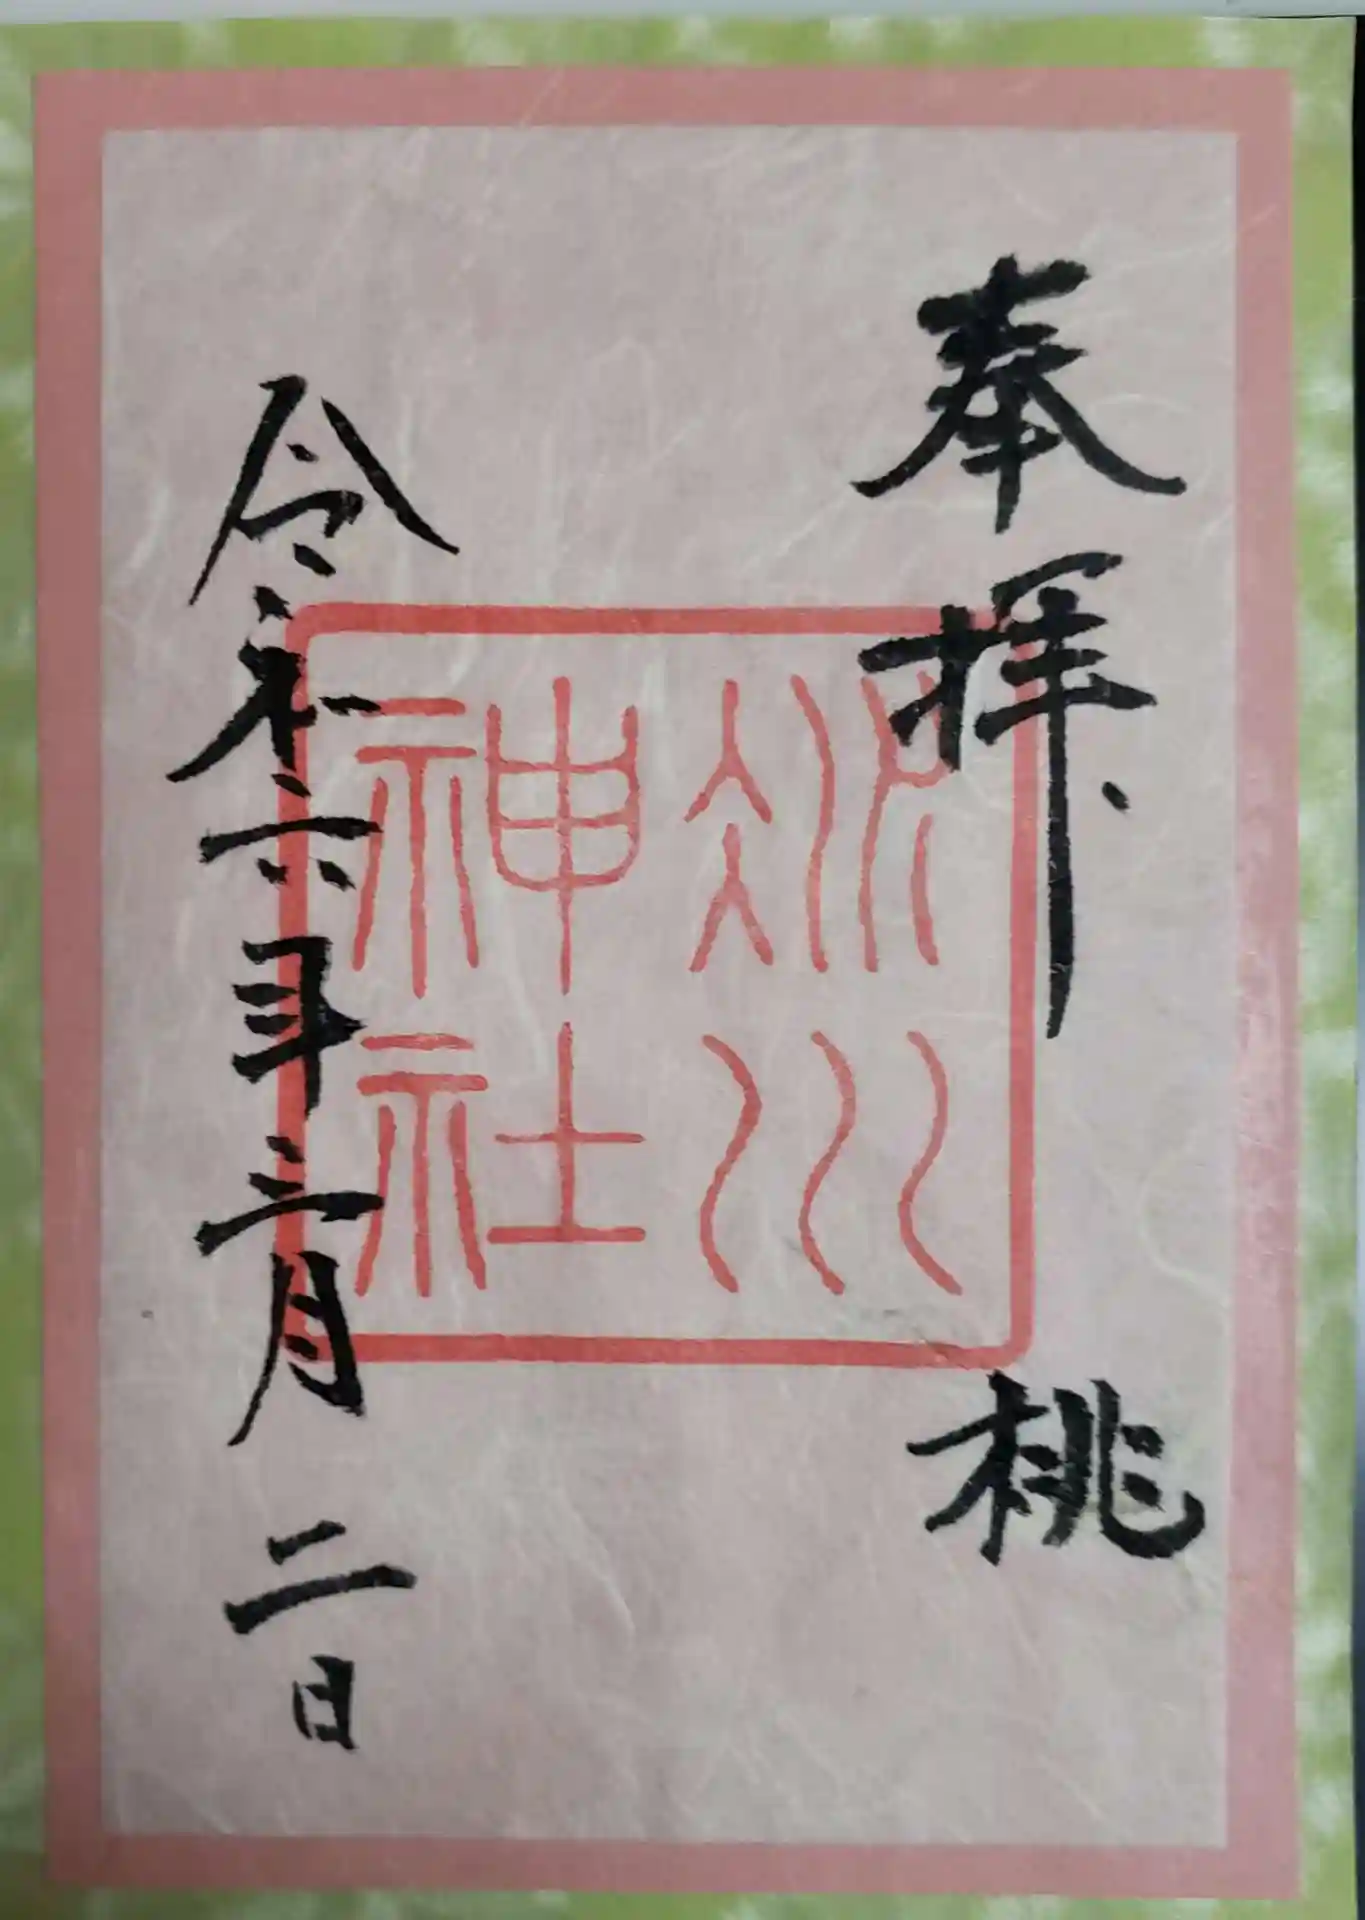 奉拝
桃
冰川
神社
令和六年三月二日